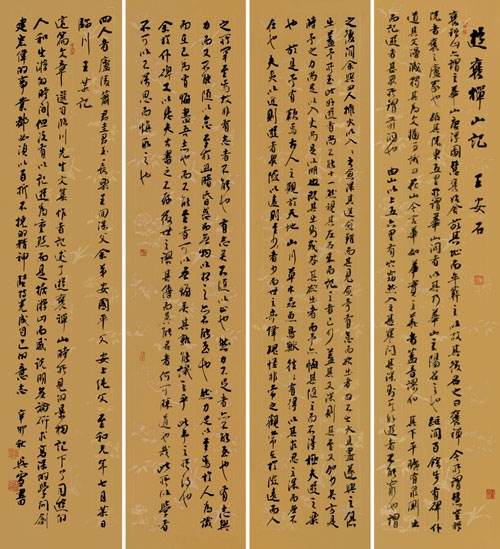 遊褒禪山記　王安石
褒禪山亦謂之華山唐浮圖慧褒始舍於其址而卒葬之以故其後名之曰褒禪今所謂慧空禪
院者褒之廬冢也距其院東五里所謂華山洞者以其乃華山之陽名之也距洞百餘步有碑仆
道其文漫滅獨其為文猶可識曰花山今言華如華實之華者蓋音謬也其下平曠有泉側出
而記遊者甚眾所謂前洞也　由山以上五六里有穴窈然入之甚寒問其深則其好遊者不能窮也謂
之後洞余與四人擁火以入入之愈深其進愈難而其見愈奇有怠而欲出者曰不出火且盡遂與之俱
出蓋予所至比好遊者尚不能十一然視其左右來而記之者已少蓋其又深則其至又加少矣方是
時予之力尚足以入火尚足以明也既其出則或咎其欲出者而予亦悔其隨之而不得極夫遊之樂
也於是予有歎焉古人之觀於天地山川草木蟲魚鳥獸往往有得以其求思之深而無不
在也夫夷以近則遊者眾險以遠則至者少而世之奇偉瑰怪非常之觀常在於險遠而人
之所罕至焉故非有志者不能至也有志矣不隨以止也然力不足者亦不能至也有志與
力而又不隨以怠至於幽暗昏惑而無物以相之亦不能至也然力足以至焉於人為可譏
而在己為有悔盡吾志也而不能至者可以無悔矣其孰能譏之乎此予之所得也
余於仆碑又以悲夫古書之不存後世之謬其傳而莫能名者何可勝道也哉此所以學者
不可以不深思而慎取之也
四人者廬陵蕭君圭君玉長樂王回深父余弟安國平父安上純父至和元年七月某日
臨川王安記
這篇文章選自臨川先生文集作者記述了遊褒禪山時所見的景物記下了同遊的
人和出游的時間但沒有以記遊為重點而是據游山而感說明無論研求高深的學問創
建宏偉的事業都必須以百折不撓的精神完成自己的意志　辛卯秋